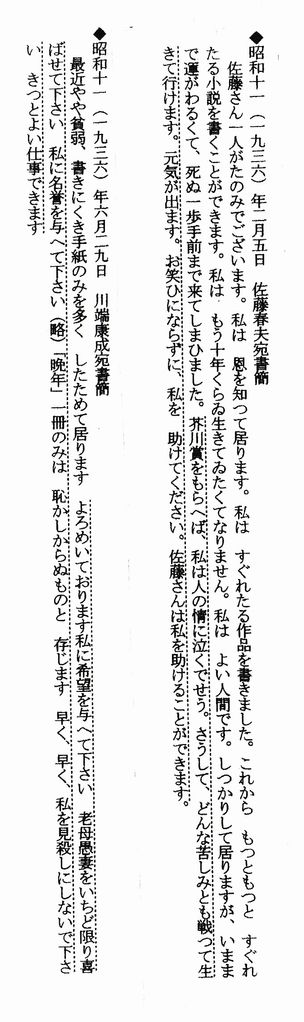 ◆昭和十一（一九三六）年二月五日　佐藤春夫宛書簡
佐藤さん一人がたのみでございます。私は　恩を知つて居ります。私は　すぐれたる作品を書きました。これから　もつともつと　すぐれ
たる小説を書くことができます。私は　もう十年くらゐ生きてゐたくてなりません。私は　よい人間です。しつかりして居りますが、いまま
で運がわるくて、死ぬ一歩手前まで来てしまひました。芥川賞をもらへば、私は人の情に泣くでせう。さうして、どんな苦しみとも戦つて生
きて行けます。元気が出ます。お笑ひにならずに、私を　助けてください。佐藤さんは私を助けることができます。
◆昭和十一（一九三六）年六月二九日　川端康成宛書簡
最近やや貧弱、書きにくき手紙のみを多く　したためて居ります　よろめいております私に希望を与へて下さい　老母愚妻をいちど限り喜
ばせて下さい　私に名誉を与へて下さい（略）「晩年」一冊のみは　恥かしからぬものと　存じます　早く、早く、私を見殺しにしないで下さ
い　きつとよい仕事できます